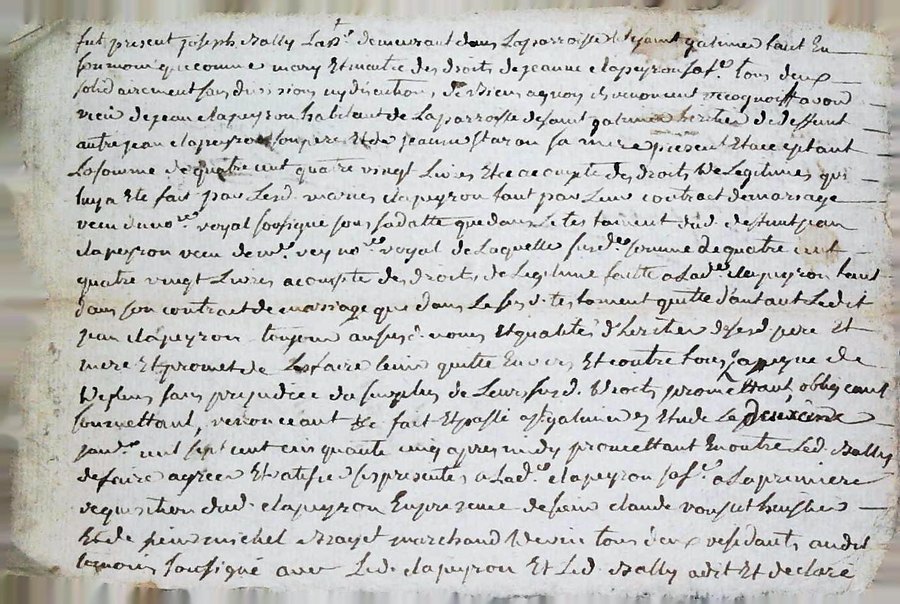 fut present joseph Bally Labr. demeurant dans La parroisse de saint galmier tant En
son nom que comme mary Et maitre des droits de jeanne clapeyron sa fe. tous deux
solidairement sans division ny discution, de biens agnois ils renoncent recognoitt avoir
receu de jean clapeyron habitant de La parroisse de saint galmier heritier de deffunt
autre jean clapeyron son pere Et de jeanne sa mere present Et acceptant
La somme de quatre cent quatre vingt Livres Et ce a compte des droits De Legitimes qui
luy a Ete fait par Lesd. mariés clapeyron tant par Leur contract de mariage
receu du nore. royal sousigné sous sa datte que dans Le testament dud. deffunt jean
clapeyron receu de me. nore. royal de Laquelle susde. somme de quatre cent
quatre vingt Livres a compte de droits de Legitime faitte a Lade. clapeyron tant
dans son contract de mariage que dans Le susd. testament quitte d'autant Ledit
jean clapeyron toujour ausd. noms Et qualité d'heritier de sesd. pere Et
mere Et promet de Les faire tenir quitte Envers Et contre tous a peyne de
Depens sans prejudice du surplus de Leurs susd. Droits promettant, obligeant
soumettant, renonceant &c fait Et passé a st. galmier Etude Le deuxième
janr. mil sept cent cinquante cinq apres midy promettant En outre Led. Bally
de faire agreer Et ratifier ses presentes a Lade. clapeyron sa fe. a La premiere
requisition dud. clapeyron En presence de sieur claude huissier
Et de sieur michel marchand De vin tous deux residants aud. lieu
temoins sousigné avec Led. clapeyron Et Led. Bally a dit Et declaré